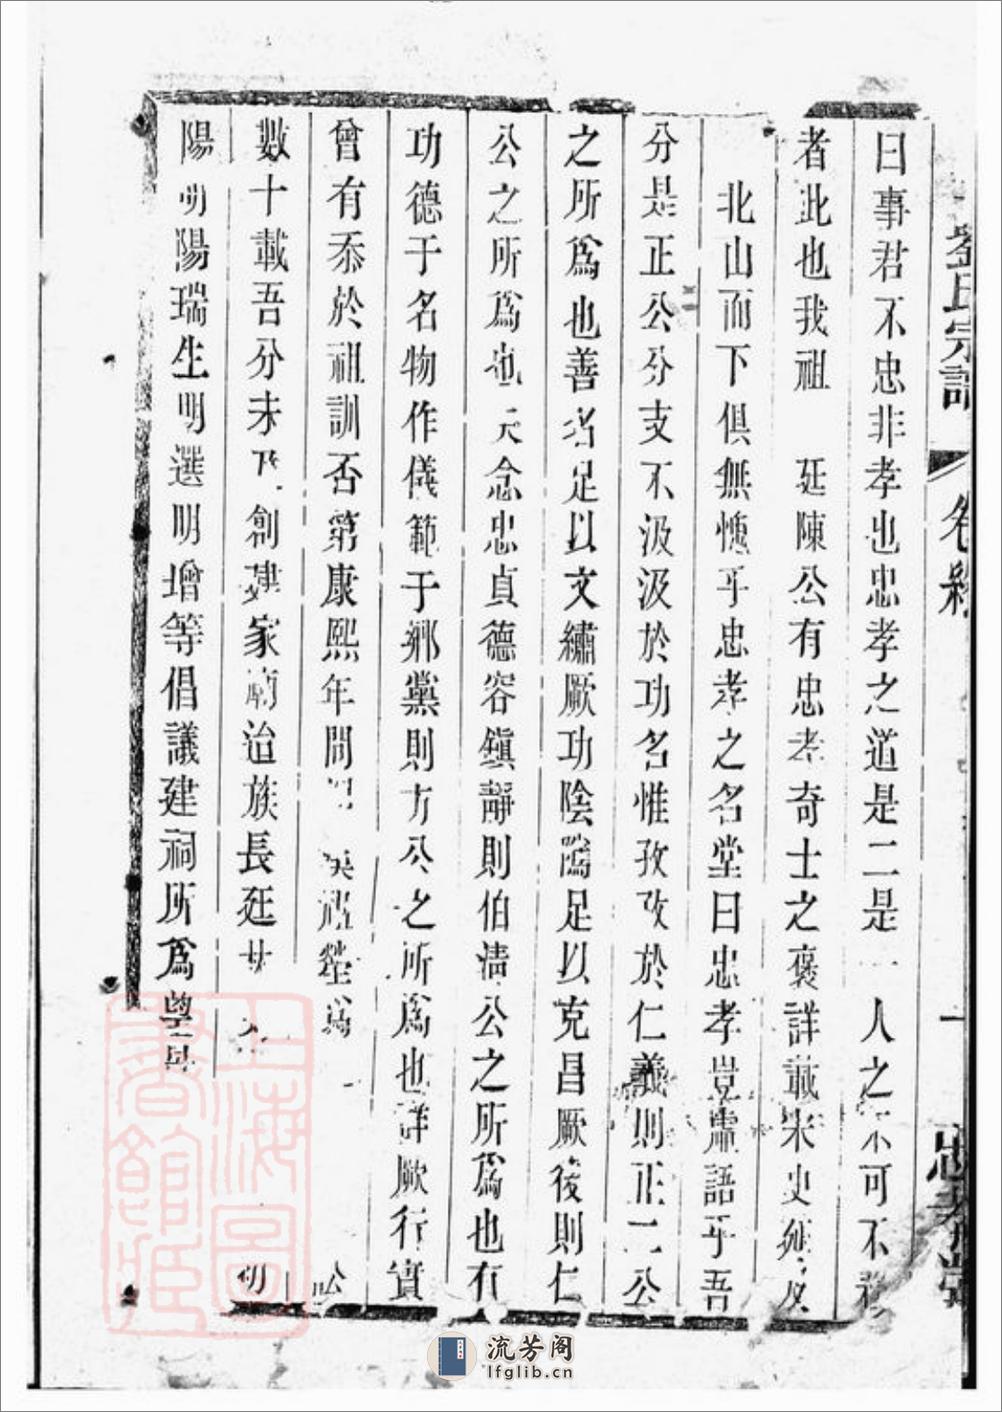 氏宗譜 卷 忠孝堂
曰事君不忠非孝也忠孝之道是二是一人之不可不
者此也我祖 廷陳公有忠孝奇士之褒詳載宋史
北山而下俱無愧乎忠孝之名堂曰忠孝豈虛語乎吾
分是正公分支不汲汲於功名惟孜孜於仁義則正一公
之所爲也善名足以文繡厥功陰隲足以克昌厥後則仁
公之所爲也天念忠貞德容鎮靜則伯清公之所爲也有
功德于名物作儀範于鄉黨則方公之所爲也詳厥行實
曾有忝於祖訓否第康熙年間 爲 公
數十載吾分未及創建家廟治族長廷 明
陽明陽瑞生明選明增等倡議建祠所爲
上海圖書館藏
流芳阁
lfglib.cn